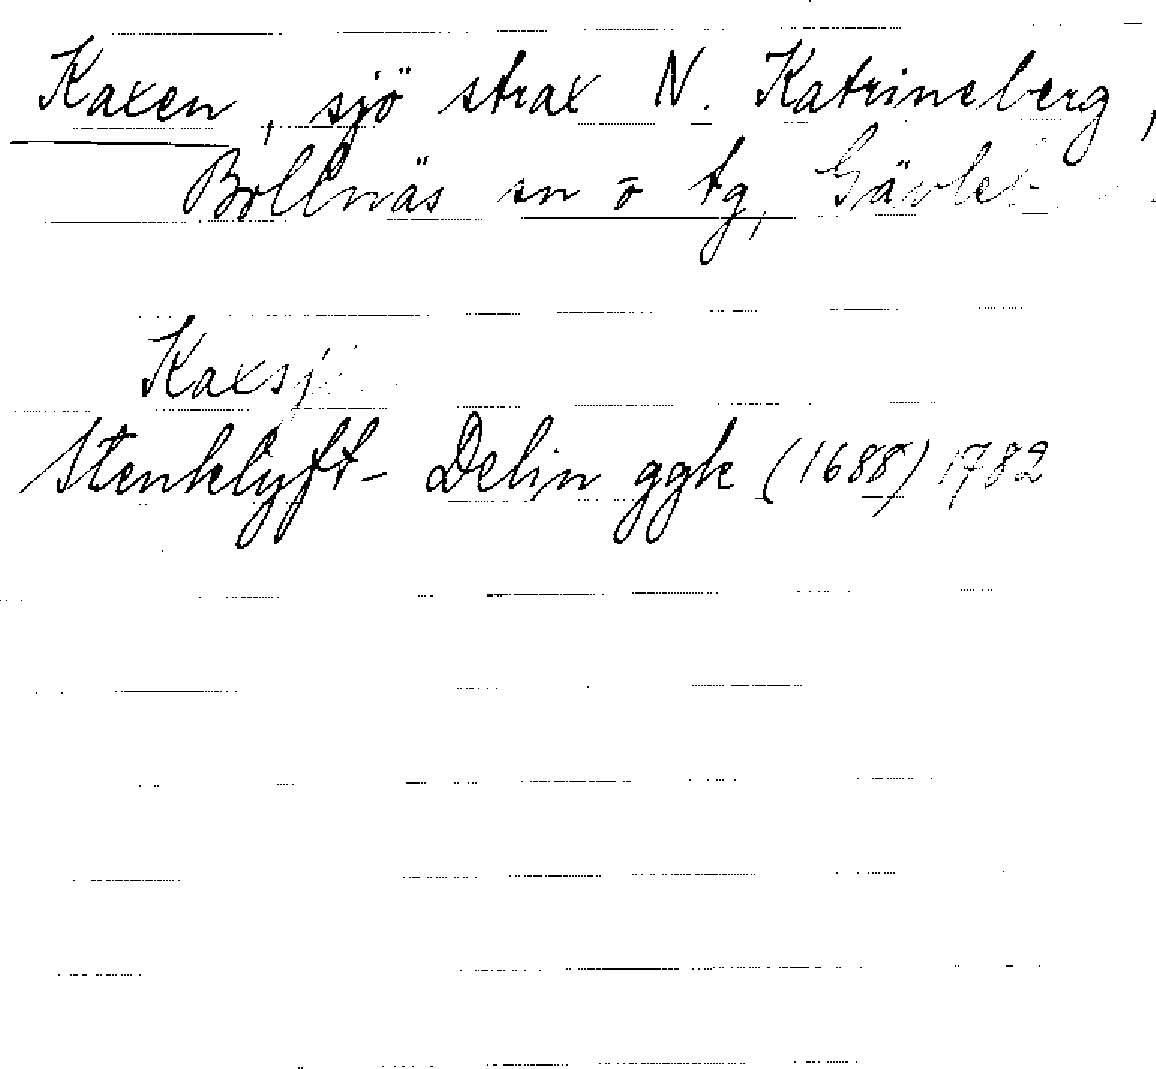 Kaxen, sjö strax N. Katrineberg,
Bollnäs sn o tg,
Stenklyft- Delin ggk (1688) 1782